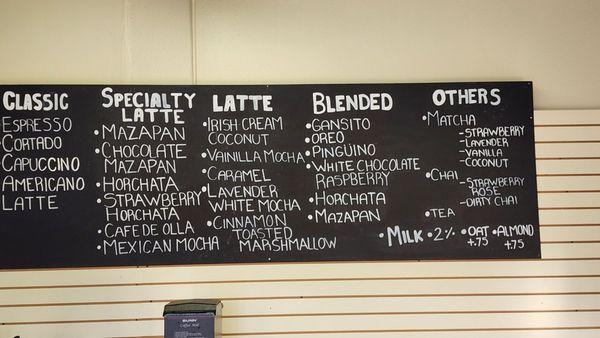 CLASSIC
ESPRESSO
CORTADO
CAPUCCINO
AMERICANO
LATTE
SPECIALTY
LATTE
•MAZAPAN
•CHOCOLATE
MAZAPAN
•HORCHATA
•STRAWBERRY
HORCHATA
•CAFE DE OLLA
•MEXICAN MOCHA
LATTE
•IRISH CREAM
COCONUT
•VAINILLA MOCHA
•CARAMEL
•LAVENDER
WHITE MOCHA
•CINNAMON
TOASTED
MARSHMALLOW
BLENDED
•GANSITO
•OREO
•PINGÜINO
•WHITE CHOCOLATE
RASPBERRY
•HORCHATA
•MAZAPAN
OTHERS
•MATCHA
-STRAWBERRY
-LAVENDER
-VANILLA
-COCONUT
•CHAI
-STRAWBERRY
ROSE
-DIRTY CHAI
•TEA
•MILK •2% •OAT •ALMOND
+.75 +.75
BUNN